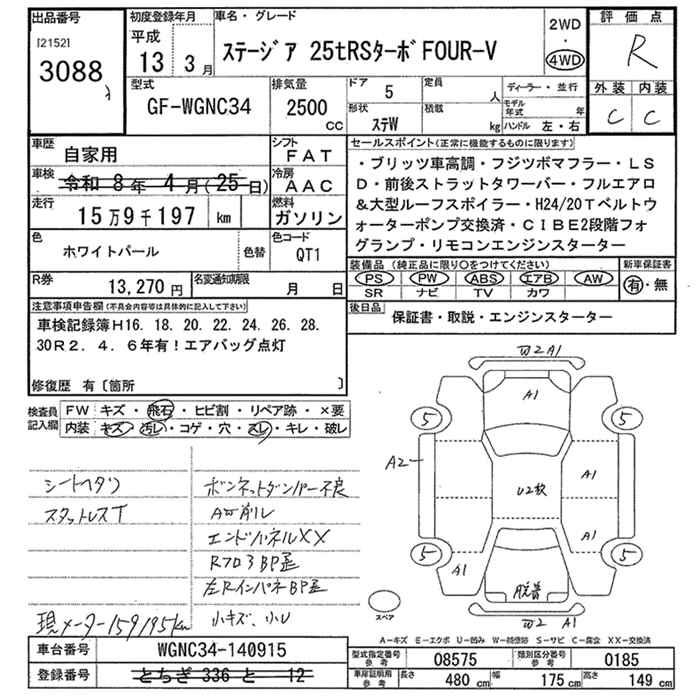 出品番号
[2152]
3088
初度登録年月
平成
13 3月
車名・グレード
ステージア 25tRSターボFOUR-V
2WD
・
4WD
評価点
R
外装 内装
C C
型式
GF-WGNC34
排気量
2500
CC
ドア 5
形状 ステW
定員 人
積載 kg
ディーラー・並行
モデル年式 年
ハンドル 左・右
車歴 自家用
シフト FAT
車検 令和 8年 4月(25日)
冷房 AAC
走行 15万9千197 km
燃料 ガソリン
色 ホワイトパール 色替
色コード QT1
R券 13,270円
名変通知期限 月 日
セールスポイント(正常に機能するものに限ります)
・ブリッツ車高調・フジツボマフラー・LS
D・前後ストラットタワーバー・フルエアロ
&大型ルーフスポイラー・H24/20Tベルトウ
ォーターポンプ交換済・CIBE2段階フォ
グランプ・リモコンエンジンスターター
装備品(純正品に限り○をつけてください)
PS PW ABS エアB AW
SR ナビ TV カワ
新車保証書
有・無
後日品
保証書・取説・エンジンスターター
注意事項申告欄(不具合内容等は具体的に記入して下さい)
車検記録簿H16. 18. 20. 22. 24. 26. 28.
30R2. 4. 6年有!エアバッグ点灯
修復歴 有〔箇所 〕
検査員記入欄
FW キズ・飛石・ヒビ割・リペア跡・×要
内装 キズ・汚レ・コゲ・穴・スレ・キレ・破レ
シートヘタリ
スタットレスT
現メーター159195km
ボンネットダンパー不良
AW削レ
エンドパネルXX
Rフロア BP歪
左RインパネBP歪
小キズ、小U
W2 A1
A1
5
5
A2
U2枚
A1
A1
5
5
A1
脱着
W2 A1
スペア
A-キズ E-エクボ U-凹み W-補修跡 S-サビ C-腐食 XX-交換済
車台番号 WGNC34-140915
登録番号 とちぎ 336 と 12
型式指定番号 参考 08575
類別区分番号 参考 0185
車庫証明用 参考 長さ 480 cm 幅 175 cm 高さ 149 cm